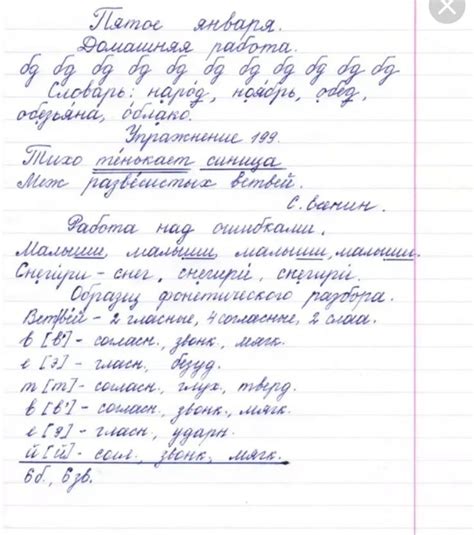 Пятое января.
Домашняя работа.
бд бд бд бд бд бд бд бд бд бд бд
Словарь: народ, ноябрь, обед,
обезьяна, облако.
Упражнение 199.
Тихо тенькает синица
Меж развесистых ветвей.
С. Есенин.
Работа над ошибками.
Малыши, малыши, малыши, малыши.
Снегири – снег, снегири, снегири.
Образец фонетического разбора.
Ветвей – 2 гласные, 4 согласные, 2 слога.
в [в'] – согласн., звонк., мягк.
е [э] – гласн., безуд.
т [т] – согласн., глух., тверд.
в [в'] – согласн., звонк., мягк.
е [э] – гласн., ударн.
й [й] – согл., звонк., мягк.
6б., 6зв.